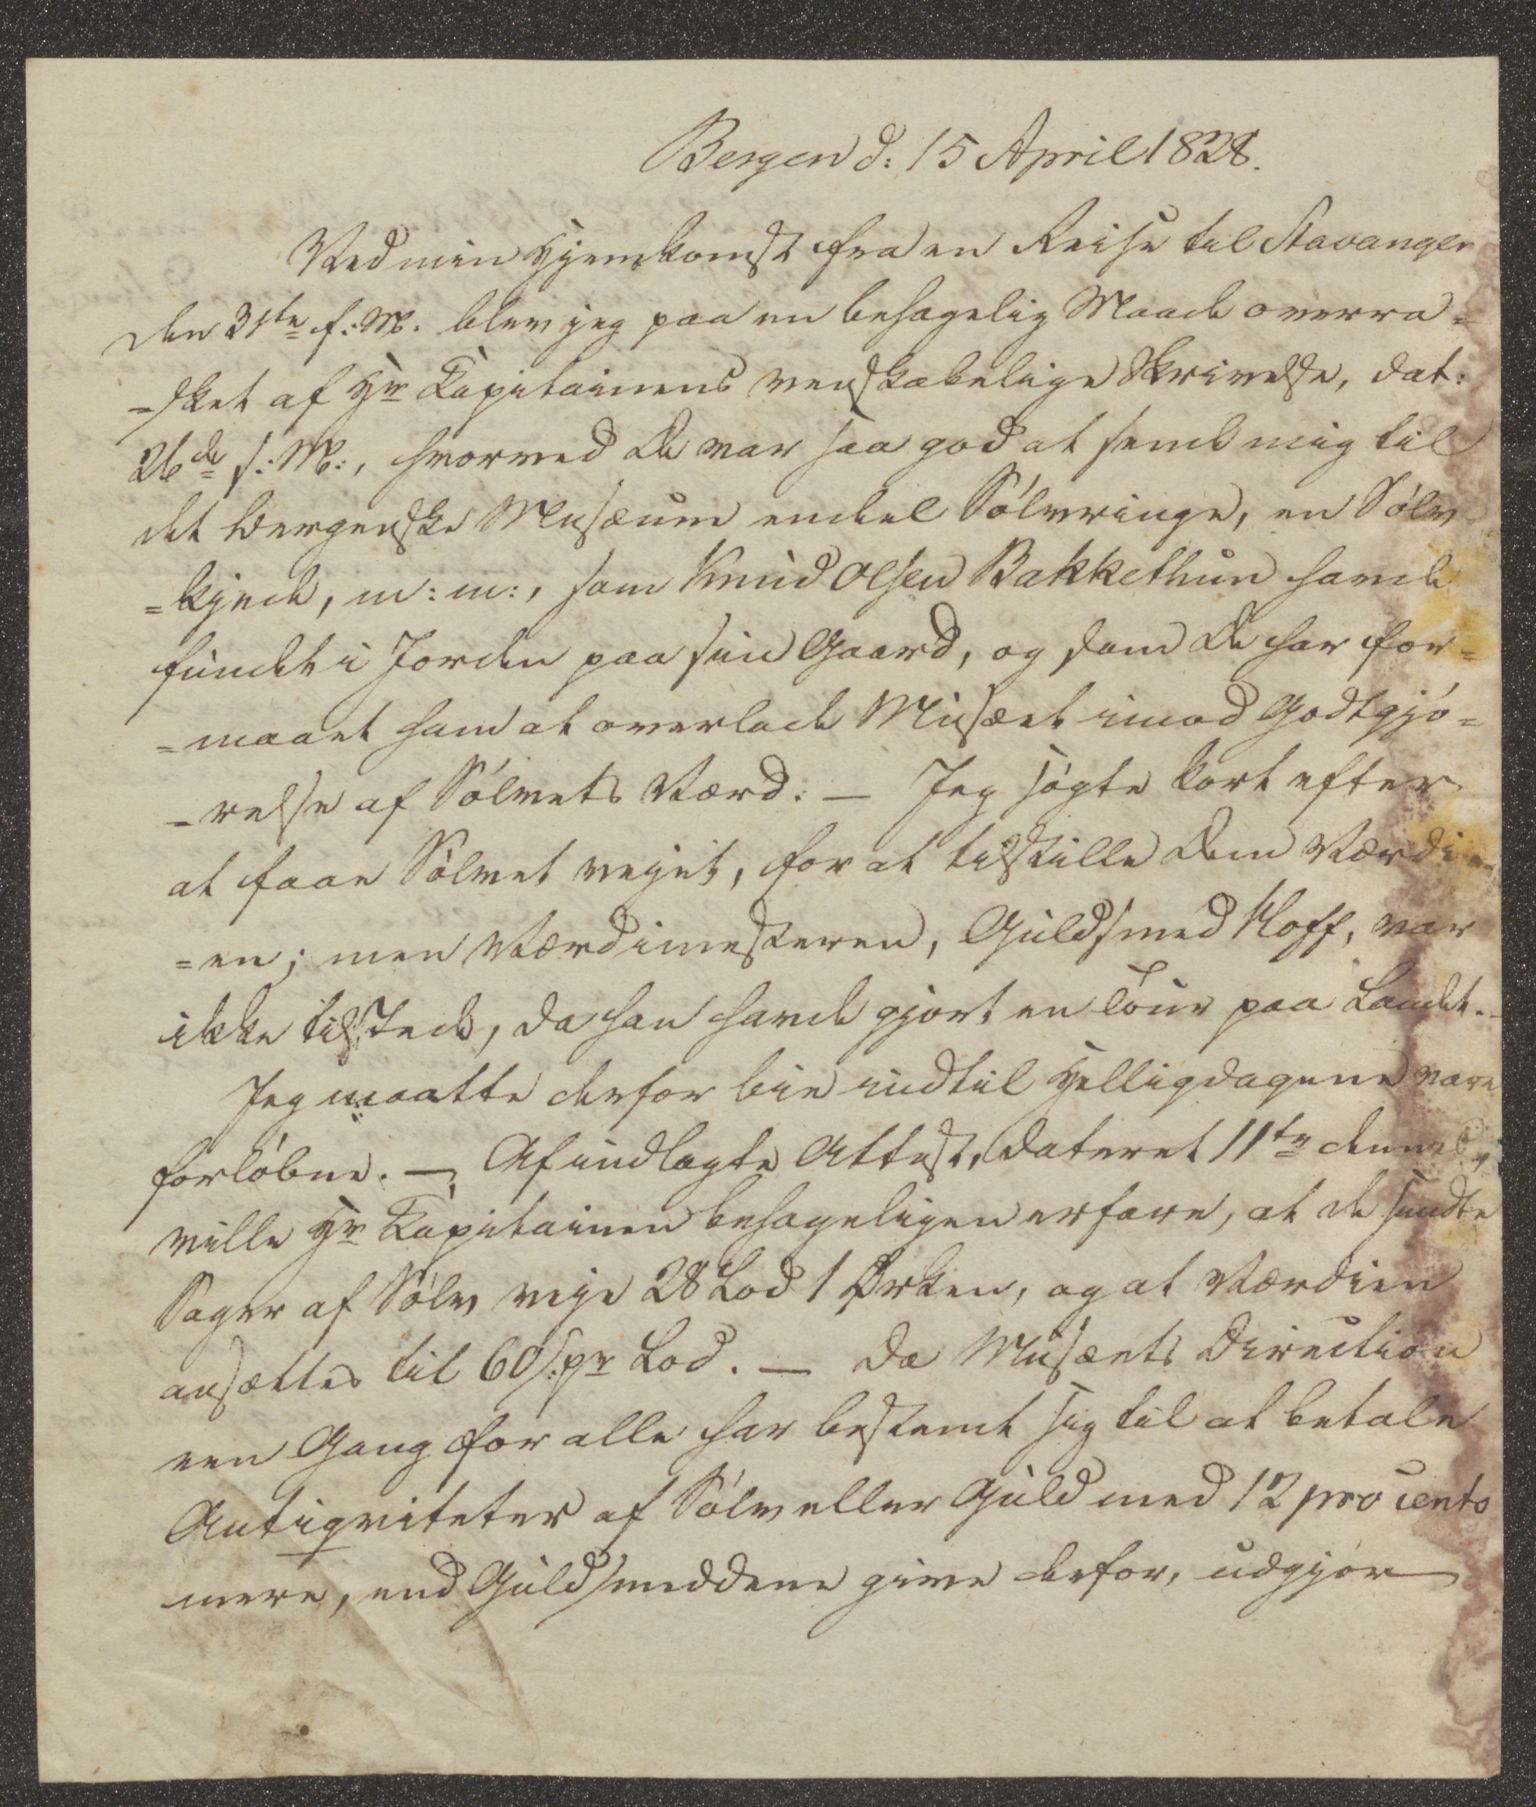 Bergen d: 15 April 1828.
Ved min Hjemkomst fra en Reise til Stavanger
den 31te f: M. blev jeg paa en behagelig Maade overra-
-sket af Hr Kapitainens venskabelige Skrivelse, dat:
26de s: M:, hvorved De var saa god at sende mig til
det bergenske Musæum endel Sølvringe, en Sølv-
=kjede, m: m:, som Knud Olsen Bakkethun havde
fundet i Jorden paa sin Gaard, og som De har for=
=maaet ham at overlade Musæet imod Godtgjö=
-relse af Sölvets Værd. — Jeg søgte kort efter
at faae Sölvet vejet, for at tilstille Dem Værdi-
=en; men Værdimesteren, Guldsmed Hoff, var
ikke tilstede, da han havde gjort en Tour paa Landet.
Jeg maatte derfor bie indtil Helligdagene vare
forløbne. — Af indlagte Attest, dateret 11te dennes,
ville Hr Kapitainen behageligen erfare, at de sendte
Sager af Sölv veje 28 Lod 1 Ørken, og at Værdien
ansættes til 60 s: pr Lod. — Da Musæets Direction
een Gang for alle har bestemt sig til at betale
Antiqviteter af Sölv eller Guld med 12 pro cento
mere, end Guldsmeddene give derfor, udgjör